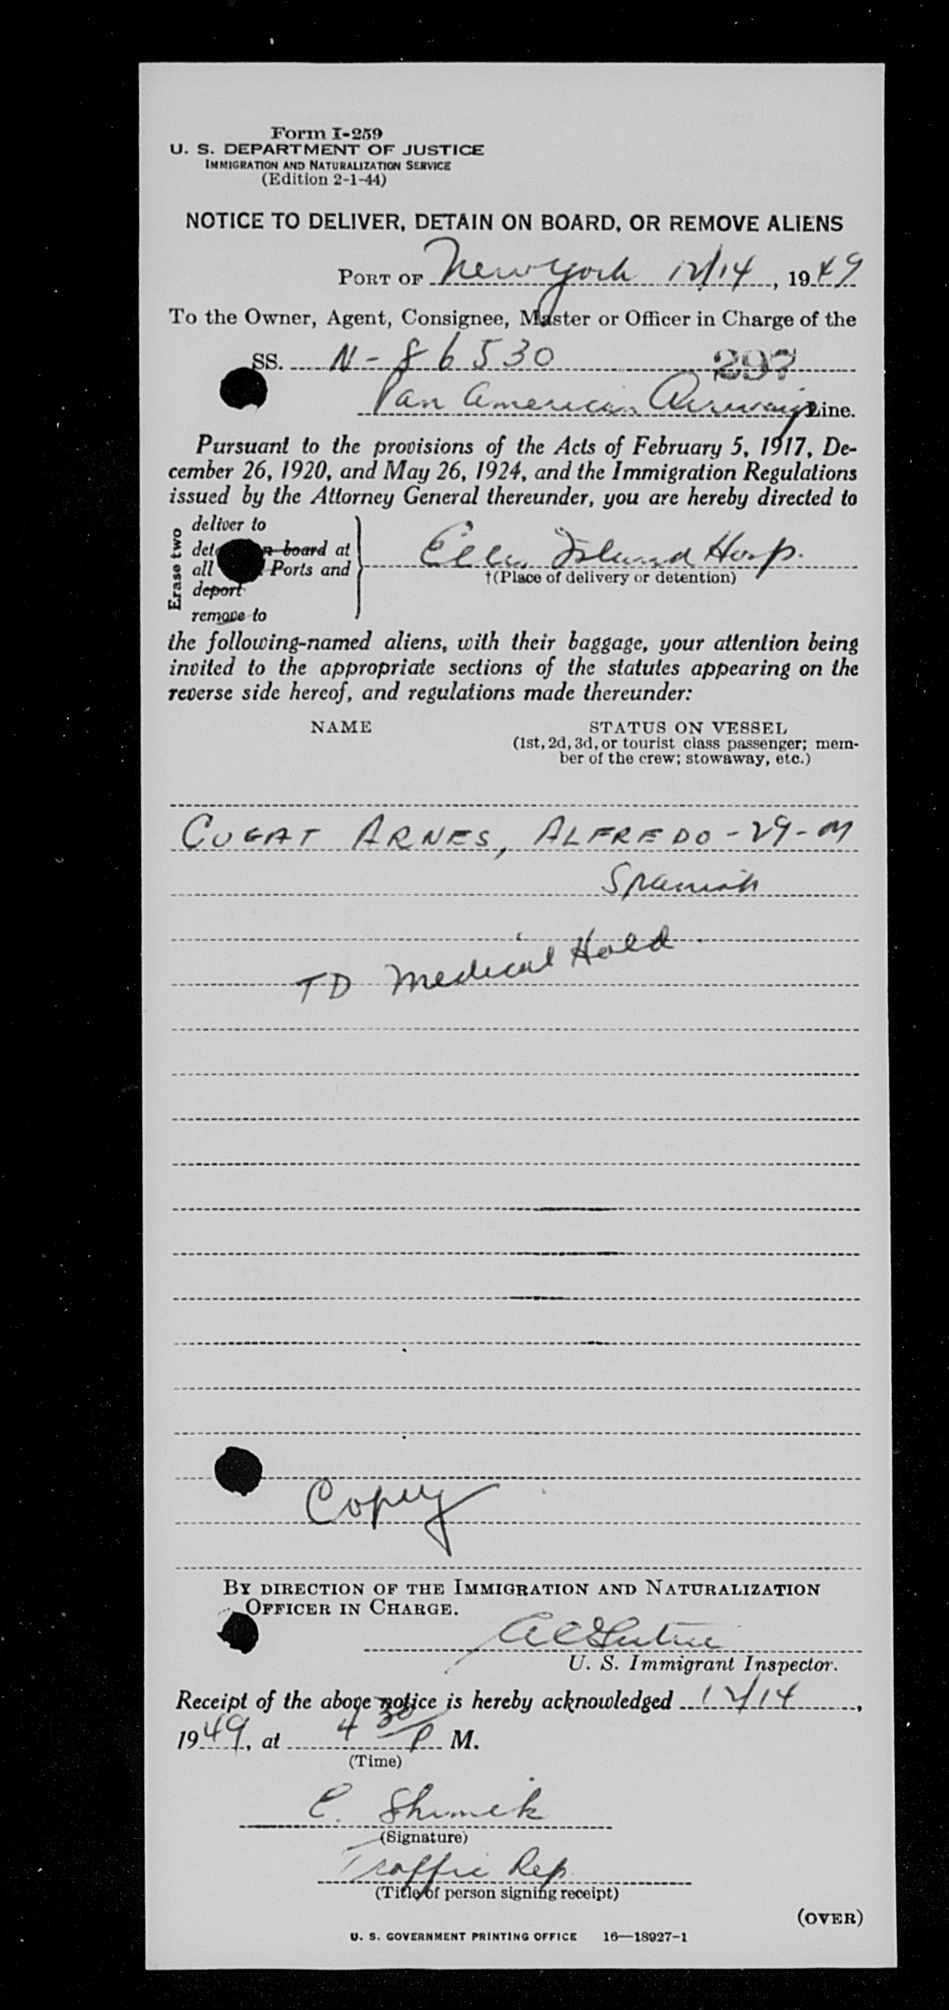 Form I-259
U. S. DEPARTMENT OF JUSTICE
IMMIGRATION AND NATURALIZATION SERVICE
(Edition 2-1-44)
NOTICE TO DELIVER, DETAIN ON BOARD, OR REMOVE ALIENS
PORT OF New York 12/14, 1949
To the Owner, Agent, Consignee, Master or Officer in Charge of the
SS. N-86530 297
Pan American Airways Line.
Pursuant to the provisions of the Acts of February 5, 1917, De-
cember 26, 1920, and May 26, 1924, and the Immigration Regulations
issued by the Attorney General thereunder, you are hereby directed to
Erase two
deliver to
board at
all Ports and
deport
remove to
Ellis Island Hosp.
†(Place of delivery or detention)
the following-named aliens, with their baggage, your attention being
invited to the appropriate sections of the statutes appearing on the
reverse side hereof, and regulations made thereunder:
NAME STATUS ON VESSEL
(1st, 2d, 3d, or tourist class passenger; mem-
ber of the crew; stowaway, etc.)
CUGAT ARNES, ALFREDO - 29 - M
Spanish
TD Medical Hold
Copy
BY DIRECTION OF THE IMMIGRATION AND NATURALIZATION
OFFICER IN CHARGE.
U. S. Immigrant Inspector.
Receipt of the above notice is hereby acknowledged 12/14,
1949, at 4 30 P M.
(Time)
C. Shimek
(Signature)
Traffic Rep.
(Title of person signing receipt)
(OVER)
U. S. GOVERNMENT PRINTING OFFICE 16—18927-1